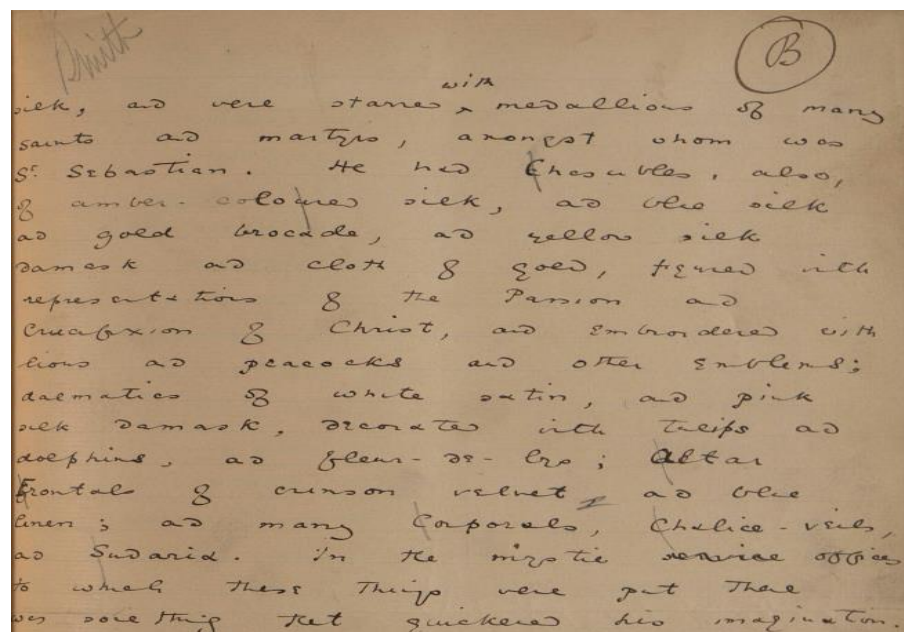 Smith
B
with
silk, and were starred ^ medallions of many
saints and martyrs, amongst whom was
St. Sebastian. He had Chasubles, also,
of amber-coloured silk, and blue silk
and gold brocade, and yellow silk
damask and cloth of gold, figured with
representations of the Passion and
Crucifixion of Christ, and embroidered with
lions and peacocks and other emblems;
dalmatics of white satin, and pink
silk damask, decorated with tulips and
dolphins, and fleur-de-lys; Altar
Frontals of crimson velvet and blue
linen; and many Corporals, Chalice-veils,
and Sudaria. In the mystic service offices
to which these things were put there
was something that quickened his imagination.